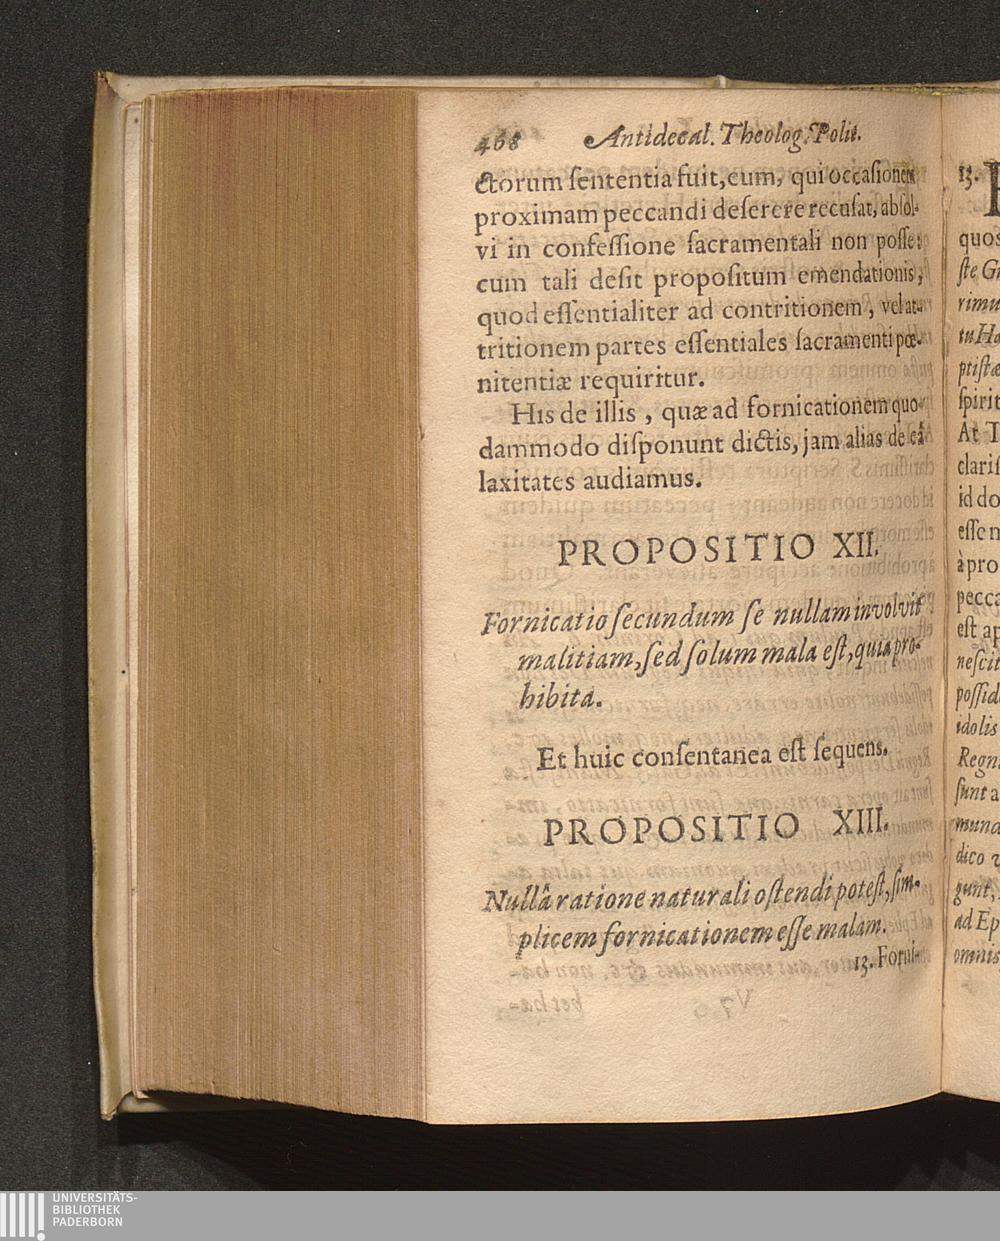 468 Antidecal. Theolog. Polit.
ctorum ſententia fuit, eum, qui occaſionem
proximam peccandi deſerere recuſat, abſol-
vi in confeſſione ſacramentali non poſſe:
cum tali deſit propoſitum emendationis,
quod eſſentialiter ad contritionem, vel at-
tritionem partes eſſentiales ſacramenti pœ-
nitentiæ requiritur.
His de illis, quæ ad fornicationem quo-
dammodo diſponunt dictis, jam alias de eâ
laxitates audiamus.
PROPOSITIO XII.
Fornicatio ſecundum ſe nullam involvit
malitiam, ſed ſolum mala eſt, quia pro-
hibita.
Et huic conſentanea eſt ſequens.
PROPOSITIO XIII.
Nullâ ratione naturali oſtendi poteſt, ſim-
plicem fornicationem eſſe malam.
13. Forni-
13.
quos
ſte
rimu
tu
ptiſtæ
ſpirit
At
clariſ
id do
eſſe
à pro
pecca
eſt ap
neſcit
poſſid
idolis
Regn
ſunt a
mund
dico
gunt,
ad Ep
omnis
UNIVERSITÄTS-
BIBLIOTHEK
PADERBORN